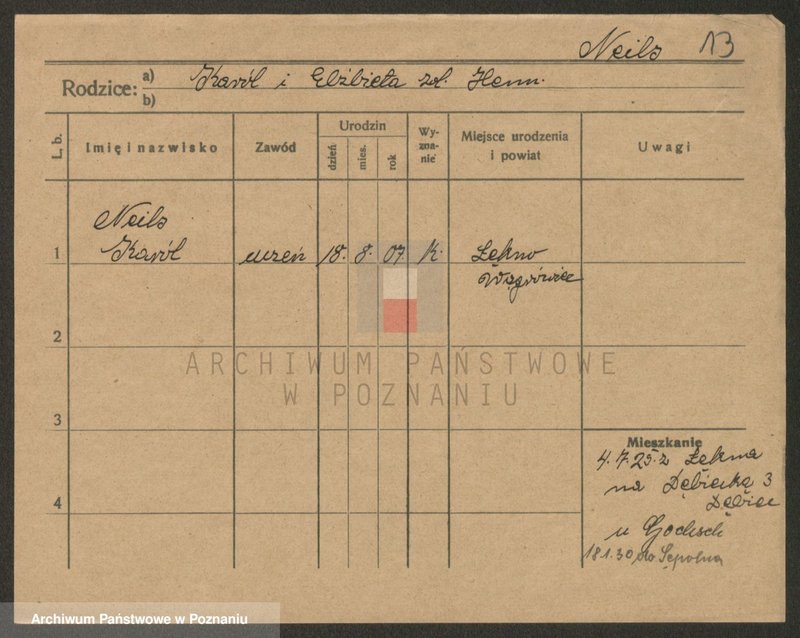 Neils 13
Rodzice: a) Karól i Elżbieta zd. Henn.
b)
L. b. Imię i nazwisko Zawód Urodzin dzień mies. rok Wy-zna-nie Miejsce urodzenia i powiat Uwagi
Neils
1 Karól uczeń 18. 8. 07. k. Łękno
Wągrówiec
2
ARCHIWUM PAŃSTWOWE
W POZNANIU
3
Mieszkanie
4.7.25. z Łekna
na Dębiecką 3
Dębiec
4
u
18.1.30 do Sępolna
Archiwum Państwowe w Poznaniu